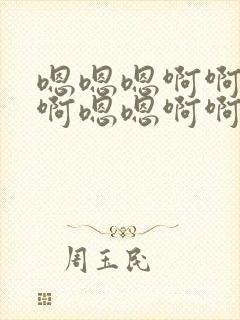 嗯嗯嗯啊啊
啊嗯嗯啊啊
周玉民